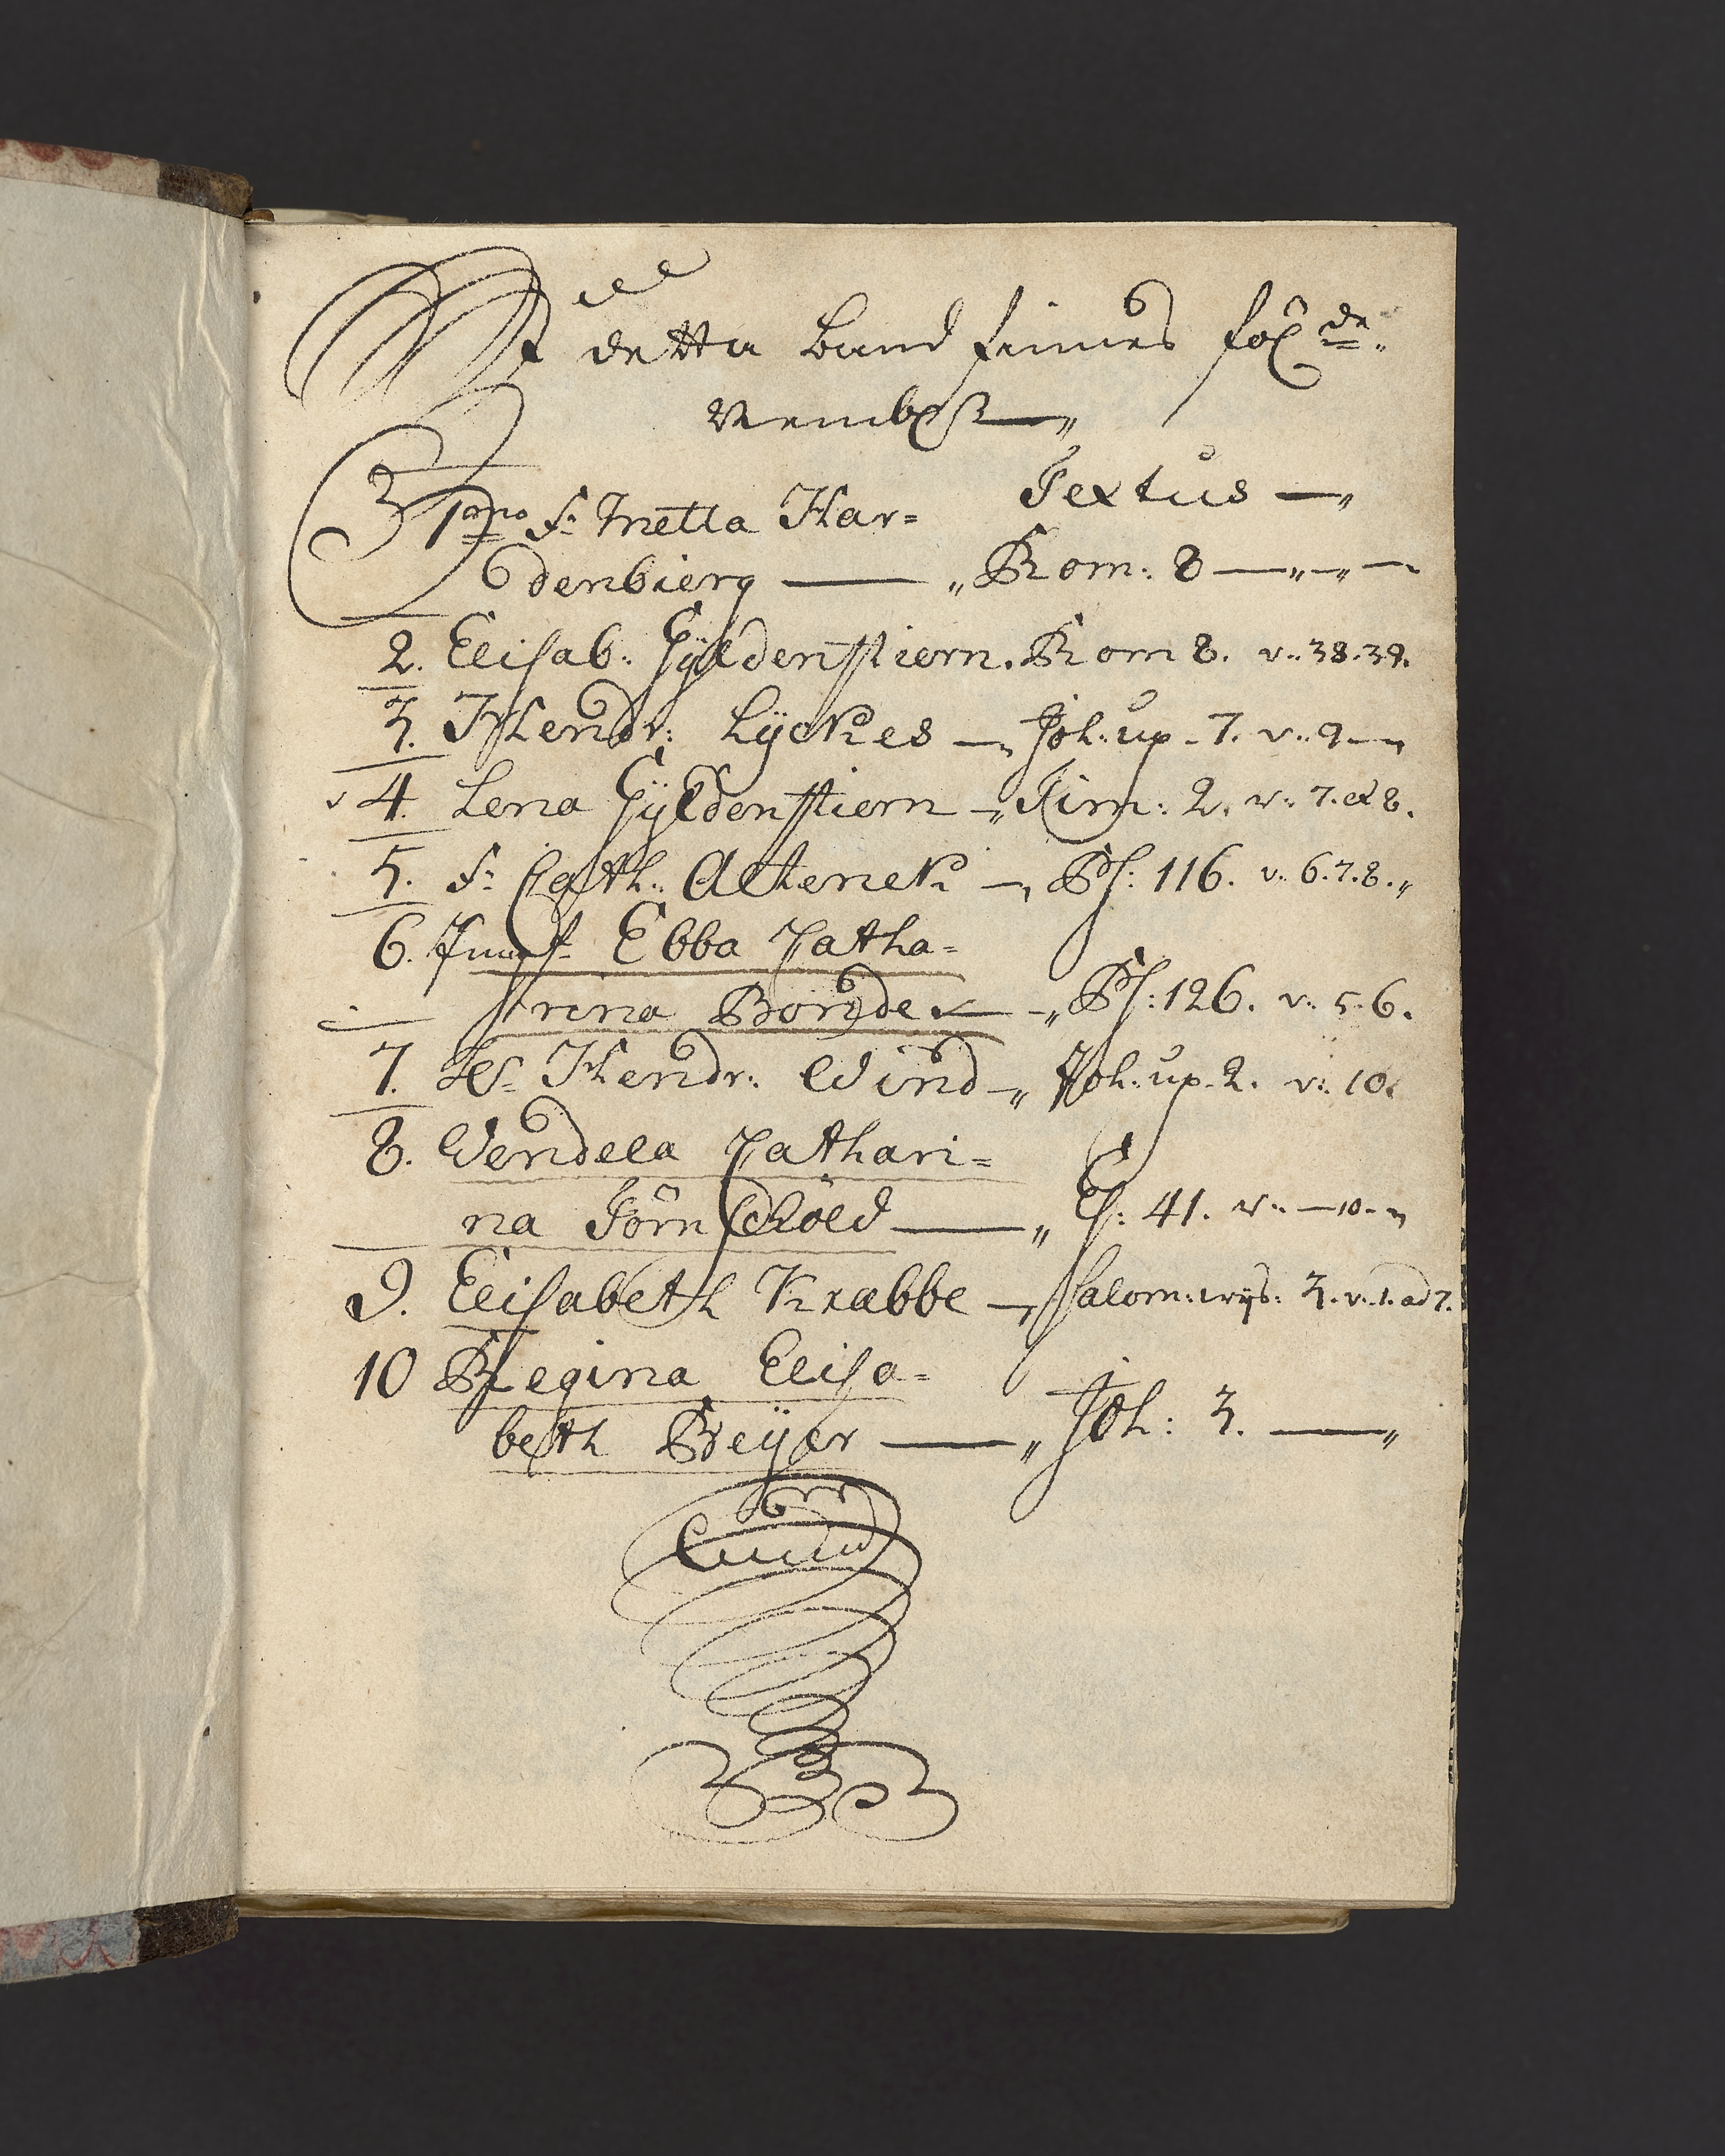 I detta Band finnes föl:de
Nembl:
Textus
1mo F. Metta Har=
denbierg — Rom: 8
2. Elisab: Gÿldenstiern. Rom 8. v: 38.39.
3. Hendr: Lÿckes — Joh: up. 7. v: 9
4. Lena Gÿldenstiern — Tim: 2. v: 7. et 8.
5. F: Cath: — Ps: 116. v: 6.7.8.
6. Jumf. Ebba Catha=
rina Bonde — Ps: 126. v: 5.6.
7. H. Hendr: Wind — Joh: up. 2. v: 10.
8. Wendela Cathari=
na Törnsköld — Es: 41. v: 10.
9. Elisabeth Krabbe — Salom: wijs: 3. v. 1. ad 7.
10 Regina Elisa=
beth Beÿer — Joh: 3.